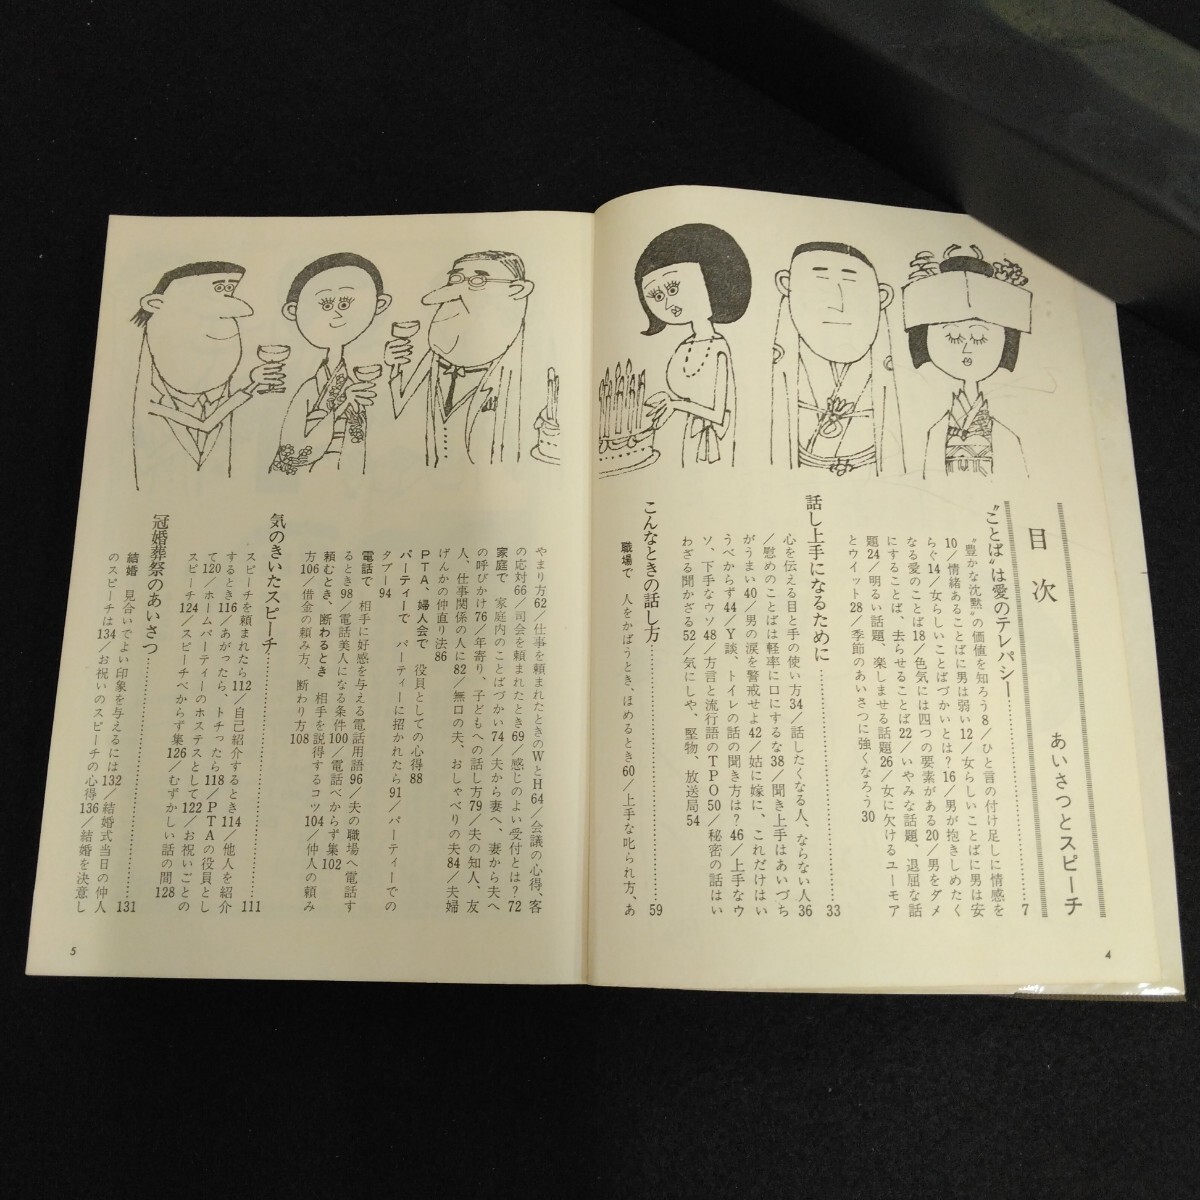 目次
あいさつとスピーチ
“ことば”は愛のテレパシー……7
“豊かな沈黙”の価値を知ろう8／ひと言の付け足しに情感を
10／情緒あることばに男は弱い12／女らしいことばに男は安
らぐ14／女らしいことばづかいとは?16／男が抱きしめたく
なる愛のことば18／色気には四つの要素がある20／男をダメ
にすることば、去らせることば22／いやみな話題、退屈な話
題24／明るい話題、楽しませる話題26／女に欠けるユーモア
とウイット28／季節のあいさつに強くなろう30
話し上手になるために……33
心を伝える目と手の使い方34／話したくなる人、ならない人36
／慰めのことばは軽率に口にするな38／聞き上手はあいづち
がうまい40／男の涙を警戒せよ42／姑に嫁に、これだけはい
うべからず44／Y談、トイレの話の聞き方は?46／上手なウ
ソ、下手なウソ48／方言と流行語のTPO50／秘密の話はい
わざる聞かざる52／気にしや、堅物、放送局54
こんなときの話し方……59
職場で　人をかばうとき、ほめるとき60／上手な叱られ方、あ
4
やまり方62／仕事を頼まれたときのWとH64／会議の心得、客
の応対66／司会を頼まれたとき69／感じのよい受付とは?72
家庭で　家庭内のことばづかい74／夫から妻へ、妻から夫へ
の呼びかけ76／年寄り、子どもへの話し方79／夫の知人、友
人、仕事関係の人に82／無口の夫、おしゃべりの夫84／夫婦
げんかの仲直り法86
PTA、婦人会で　役員としての心得88
パーティーで　パーティーに招かれたら91／パーティーでの
タブー94
電話で　相手に好感を与える電話用語96／夫の職場へ電話す
るとき98／電話美人になる条件100／電話べからず集102
頼むとき、断わるとき　相手を説得するコツ104／仲人の頼み
方106／借金の頼み方、断わり方108
気のきいたスピーチ……111
スピーチを頼まれたら112／自己紹介するとき114／他人を紹介
するとき116／あがったら、トチったら118／PTAの役員とし
て120／ホームパーティーのホステスとして122／お祝いごとの
スピーチ124／スピーチべからず集126／むずかしい話の間128
冠婚葬祭のあいさつ……131
結婚　見合いでよい印象を与えるには132／結婚式当日の仲人
のスピーチは134／お祝いのスピーチの心得136／結婚を決意し
5